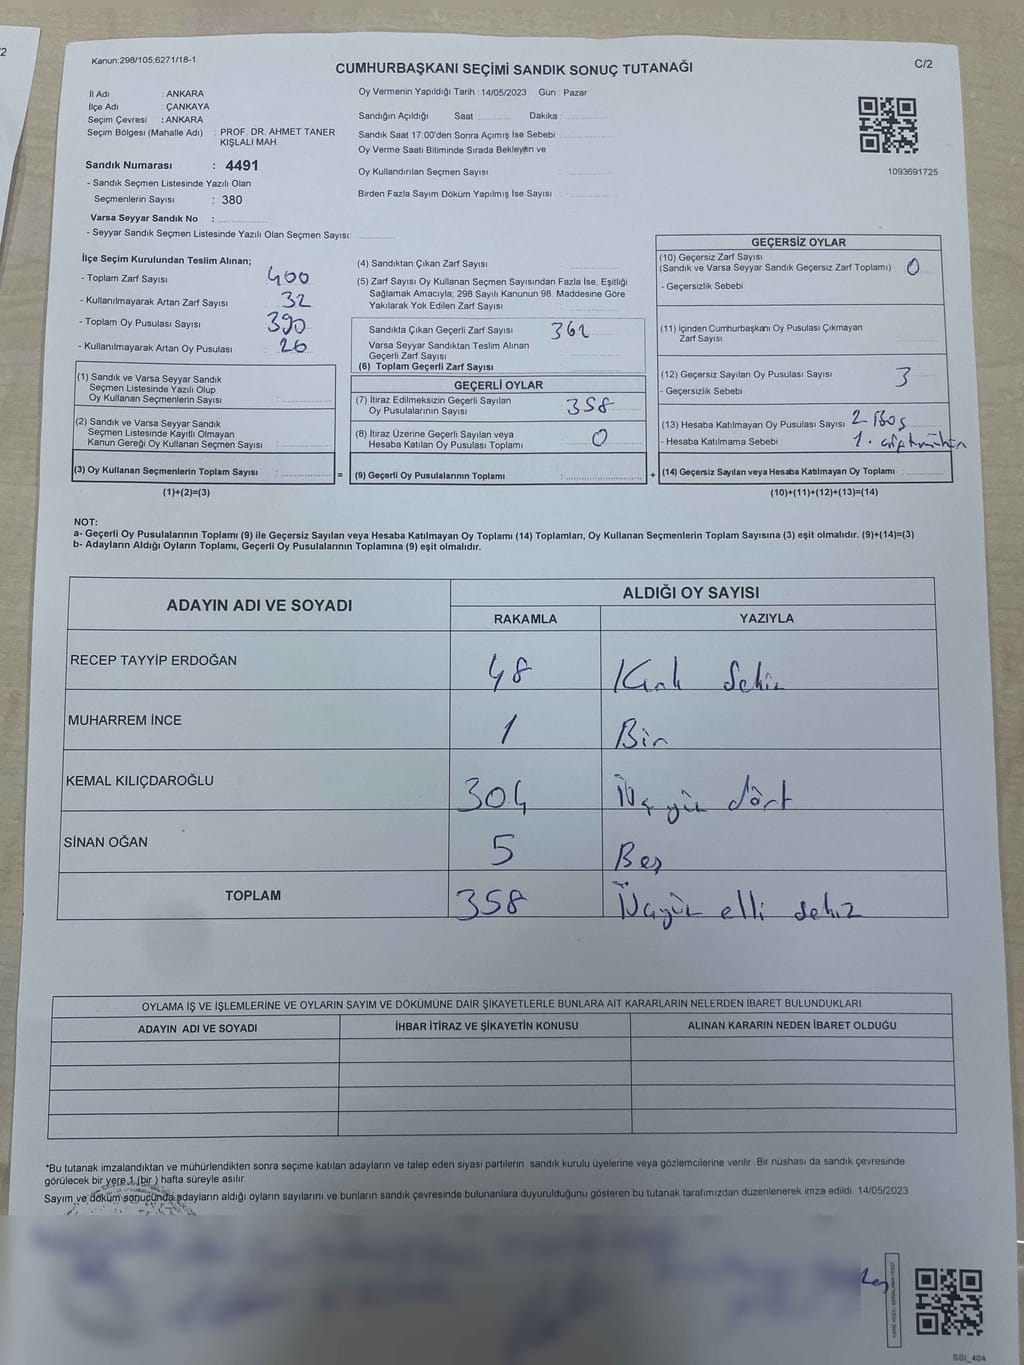 Kanun:298/105,6271/18-1
C/2
CUMHURBAŞKANI SEÇİMİ SANDIK SONUÇ TUTANAĞI
İl Adı : ANKARA
İlçe Adı : ÇANKAYA
Seçim Çevresi : ANKARA
Seçim Bölgesi (Mahalle Adı) : PROF. DR. AHMET TANER
KIŞLALI MAH.
Sandık Numarası : 4491
- Sandık Seçmen Listesinde Yazılı Olan
Seçmenlerin Sayısı : 380
Varsa Seyyar Sandık No :
- Seyyar Sandık Seçmen Listesinde Yazılı Olan Seçmen Sayısı:
Oy Vermenin Yapıldığı Tarih : 14/05/2023 Gün : Pazar
Sandığın Açıldığı Saat : Dakika :
Sandık Saat 17:00'den Sonra Açımış İse Sebebi
Oy Verme Saati Bitiminde Sırada Bekleyen ve
Oy Kullandırılan Seçmen Sayısı :
Birden Fazla Sayım Döküm Yapılmış İse Sayısı :
1093691725
İlçe Seçim Kurulundan Teslim Alınan;
- Toplam Zarf Sayısı 400
- Kullanılmayarak Artan Zarf Sayısı 32
- Toplam Oy Pusulası Sayısı 390
- Kullanılmayarak Artan Oy Pusulası : 26
(1) Sandık ve Varsa Seyyar Sandık
Seçmen Listesinde Yazılı Olup
Oy Kullanan Seçmenlerin Sayısı :
(2) Sandık ve Varsa Seyyar Sandık
Seçmen Listesinde Kayıtlı Olmayan
Kanun Gereği Oy Kullanan Seçmen Sayısı :
(3) Oy Kullanan Seçmenlerin Toplam Sayısı : =
(1)+(2)=(3)
(4) Sandıktan Çıkan Zarf Sayısı :
(5) Zarf Sayısı Oy Kullanan Seçmen Sayısından Fazla İse, Eşitliği
Sağlamak Amacıyla; 298 Sayılı Kanunun 98. Maddesine Göre
Yakılarak Yok Edilen Zarf Sayısı :
Sandıkta Çıkan Geçerli Zarf Sayısı 361
Varsa Seyyar Sandıktan Teslim Alınan
Geçerli Zarf Sayısı
(6) Toplam Geçerli Zarf Sayısı
GEÇERLİ OYLAR
(7) İtiraz Edilmeksizin Geçerli Sayılan
Oy Pusulalarının Sayısı : 358
(8) İtiraz Üzerine Geçerli Sayılan veya
Hesaba Katılan Oy Pusulası Toplamı : 0
(9) Geçerli Oy Pusulalarının Toplamı : +
GEÇERSİZ OYLAR
(10) Geçersiz Zarf Sayısı
(Sandık ve Varsa Seyyar Sandık Geçersiz Zarf Toplamı) : 0
- Geçersizlik Sebebi
(11) İçinden Cumhurbaşkanı Oy Pusulası Çıkmayan
Zarf Sayısı :
(12) Geçersiz Sayılan Oy Pusulası Sayısı : 3
- Geçersizlik Sebebi
(13) Hesaba Katılmayan Oy Pusulası Sayısı : 2 Boş
- Hesaba Katılmama Sebebi : 1. çift mühür
(14) Geçersiz Sayılan veya Hesaba Katılmayan Oy Toplamı :
(10)+(11)+(12)+(13)=(14)
NOT:
a- Geçerli Oy Pusulalarının Toplamı (9) ile Geçersiz Sayılan veya Hesaba Katılmayan Oy Toplamı (14) Toplamları, Oy Kullanan Seçmenlerin Toplam Sayısına (3) eşit olmalıdır. (9)+(14)=(3)
b- Adayların Aldığı Oyların Toplamı, Geçerli Oy Pusulalarının Toplamına (9) eşit olmalıdır.
ADAYIN ADI VE SOYADI
ALDIĞI OY SAYISI
RAKAMLA YAZIYLA
RECEP TAYYİP ERDOĞAN 48 Kırk Sekiz
MUHARREM İNCE 1 Bir
KEMAL KILIÇDAROĞLU 304 Üç yüz dört
SİNAN OĞAN 5 Beş
TOPLAM 358 Üçyüz elli sekiz
OYLAMA İŞ VE İŞLEMLERİNE VE OYLARIN SAYIM VE DÖKÜMÜNE DAİR ŞİKAYETLERLE BUNLARA AİT KARARLARIN NELERDEN İBARET BULUNDUKLARI
ADAYIN ADI VE SOYADI İHBAR İTİRAZ VE ŞİKAYETİN KONUSU ALINAN KARARIN NEDEN İBARET OLDUĞU
*Bu tutanak imzalandıktan ve mühürlendikten sonra seçime katılan adayların ve talep eden siyasi partilerin sandık kurulu üyelerine veya gözlemcilerine verilir. Bir nüshası da sandık çevresinde
görülecek bir yere 1 (bir) hafta süreyle asılır.
Sayım ve döküm sonucunda adayların aldığı oyların sayılarını ve bunların sandık çevresinde bulunanlara duyurulduğunu gösteren bu tutanak tarafımızdan düzenlenerek imza edildi. 14/05/2023
SSI_404